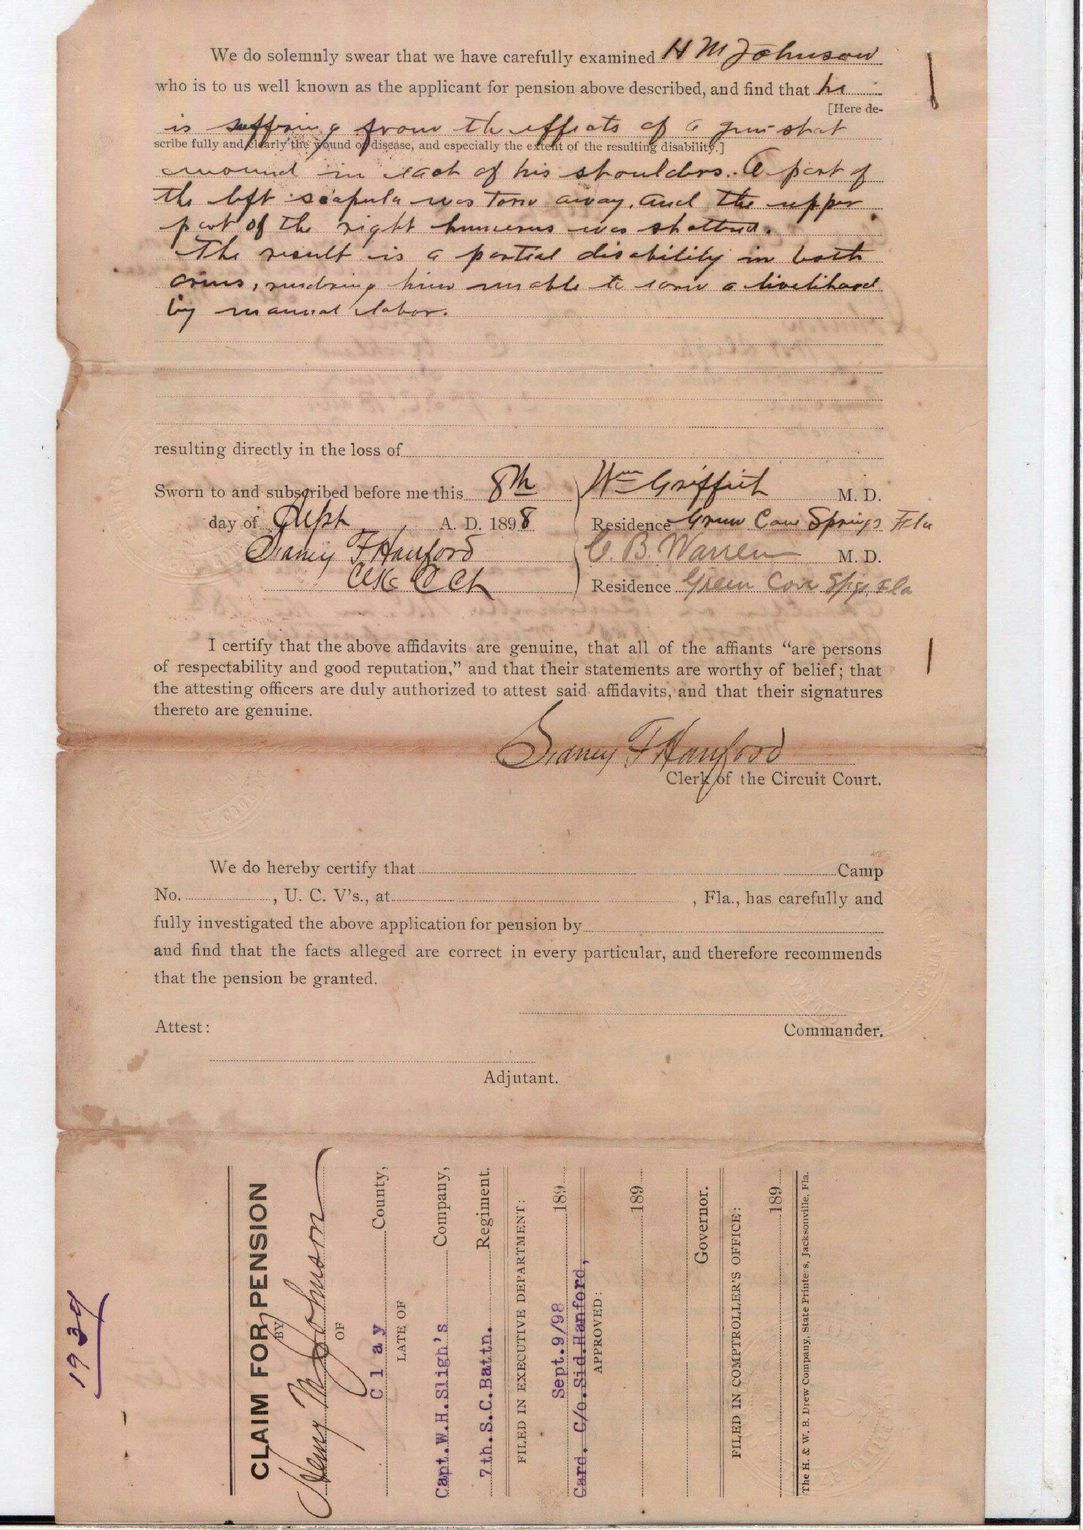 We do solemnly swear that we have carefully examined H M Johnson
who is to us well known as the applicant for pension above described, and find that he
[Here de-
is suffering from the effects of a gun shot
scribe fully and clearly the wound or disease, and especially the extent of the resulting disability.]
wound in each of his shoulders. A part of
the left scapula was torn away. and the upper
part of the right humerus was shattered.
The result is a partial disability in both
arms, rendering him unable to earn a livelihood
by manual labor.
resulting directly in the loss of
Sworn to and subscribed before me this 8th
day of Sept, A. D. 1898
Sidney F Hanford
Clk C Ct
Wm Griffith M. D.
Residence Green Cove Springs Fla
C. B. Warren M. D.
Residence Green Cove Spgs, Fla
I certify that the above affidavits are genuine, that all of the affiants "are persons
of respectability and good reputation," and that their statements are worthy of belief; that
the attesting officers are duly authorized to attest said affidavits, and that their signatures
thereto are genuine.
Sidney F Hanford
Clerk of the Circuit Court.
We do hereby certify that Camp
No. , U. C. V's., at , Fla., has carefully and
fully investigated the above application for pension by
and find that the facts alleged are correct in every particular, and therefore recommends
that the pension be granted.
Commander.
Attest:
Adjutant.
1939
CLAIM FOR PENSION
BY
Henry M Johnson
OF
Clay County,
LATE OF
Capt.W.H.Sligh's Company,
7th.S.C.Battn. Regiment.
FILED IN EXECUTIVE DEPARTMENT:
Sept.9/98 189
Card. C/o.Sid.Hanford,
APPROVED:
189
Governor.
FILED IN COMPTROLLER'S OFFICE:
189
The H. & W. B. Drew Company, State Printers, Jacksonville, Fla.